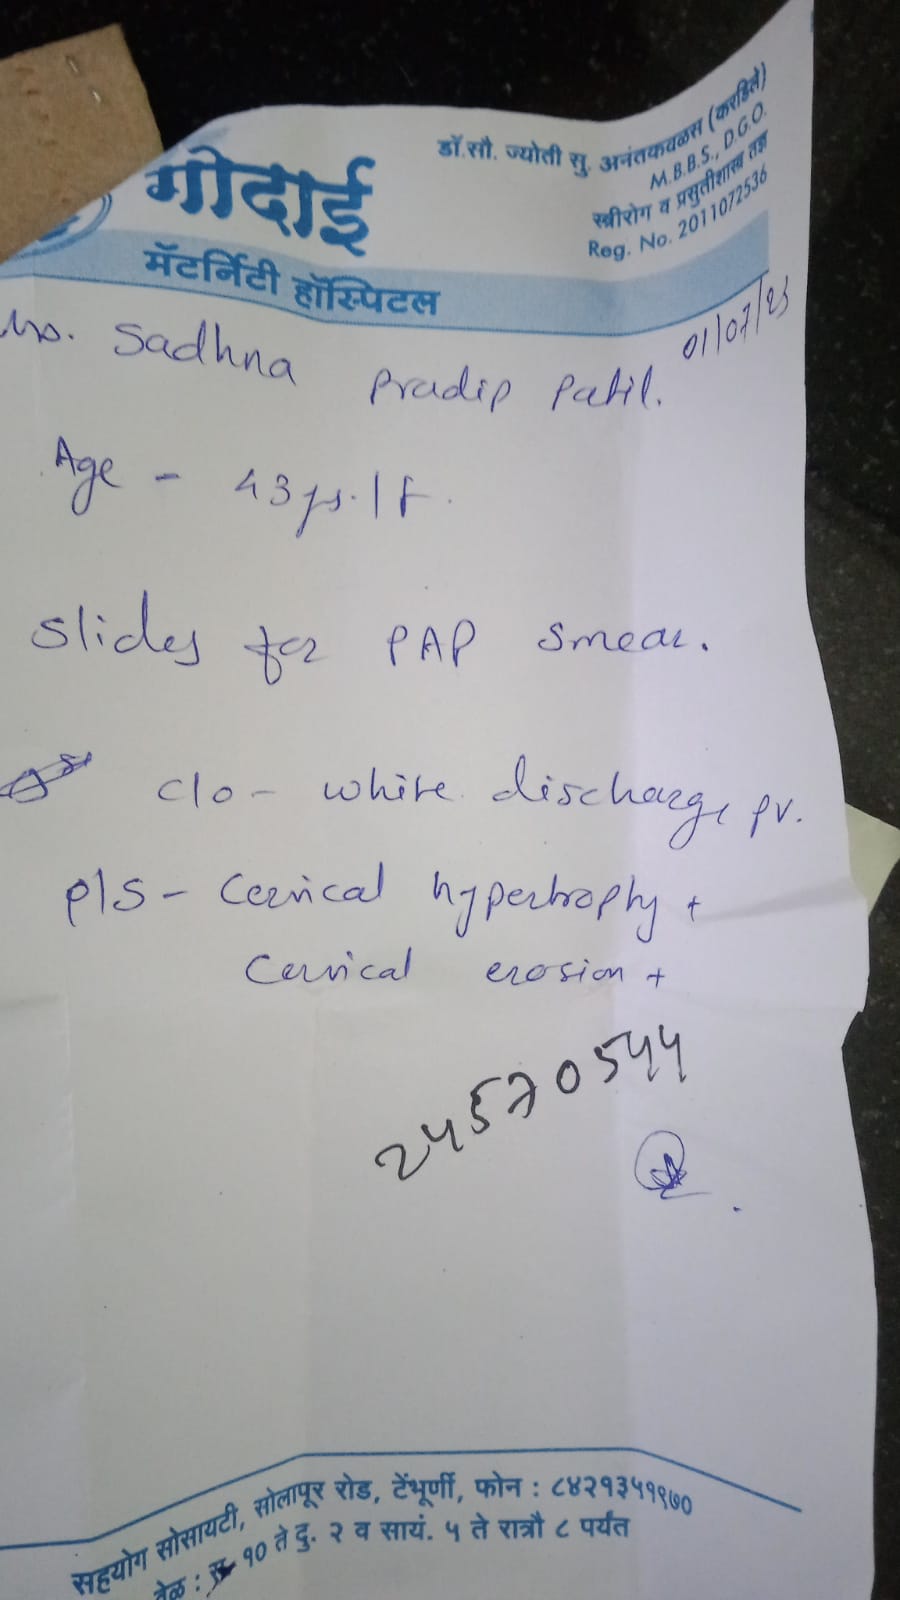 गोदाई
मॅटर्निटी हॉस्पिटल
डॉ.सौ. ज्योती सु. अनंतकवळस (करडिले)
M.B.B.S., D.G.O.
स्त्रीरोग व प्रसुतीशास्त्र तज्ञ
Reg. No. 2011072536
01/07/23
Mrs. Sadhna Pradip Patil.
Age - 43 ys. / F.
Slides for PAP Smear.
c/o - white discharge pv.
P/S - Cervical hypertrophy +
Cervical erosion +
24570544
सहयोग सोसायटी, सोलापूर रोड, टेंभूर्णी, फोन : ८४२१३५११७०
वेळ : स. १० ते दु. २ व सायं. ५ ते रात्रौ ८ पर्यंत